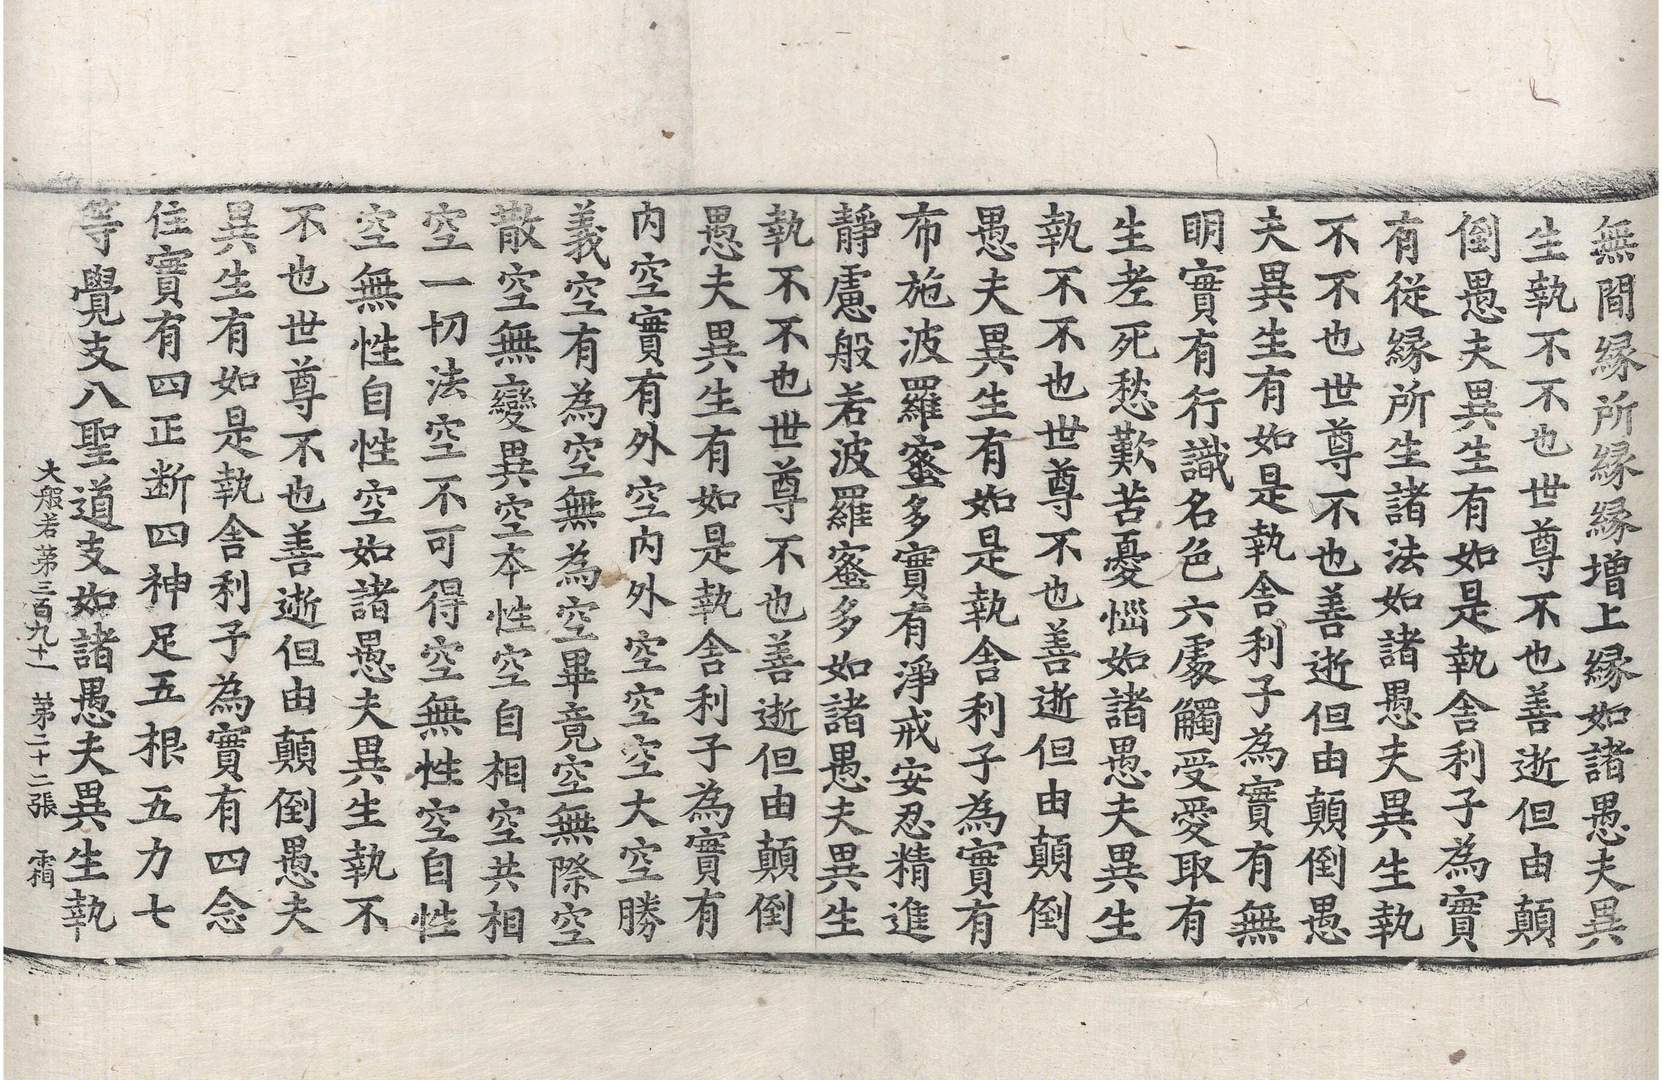 無間縁所縁縁增上縁如諸愚夫異
生執不不也世尊不也善逝但由顛
倒愚夫異生有如是執舍利子為實
有從縁所生諸法如諸愚夫異生執
不不也世尊不也善逝但由顛倒愚
夫異生有如是執舍利子為實有無
明實有行識名色六處觸受愛取有
生老死愁歎苦憂惱如諸愚夫異生
執不不也世尊不也善逝但由顛倒
愚夫異生有如是執舍利子為實有
布施波羅蜜多實有淨戒安忍精進
靜慮般若波羅蜜多如諸愚夫異生
執不不也世尊不也善逝但由顛倒
愚夫異生有如是執舍利子為實有
内空實有外空内外空空空大空勝
義空有為空無為空畢竟空無際空
散空無變異空本性空自相空共相
空一切法空不可得空無性空自性
空無性自性空如諸愚夫異生執不
不也世尊不也善逝但由顛倒愚夫
異生有如是執舍利子為實有四念
住實有四正断四神足五根五力七
等覺支八聖道支如諸愚夫異生執
大般若苐三百九十一 苐二十二張 霜